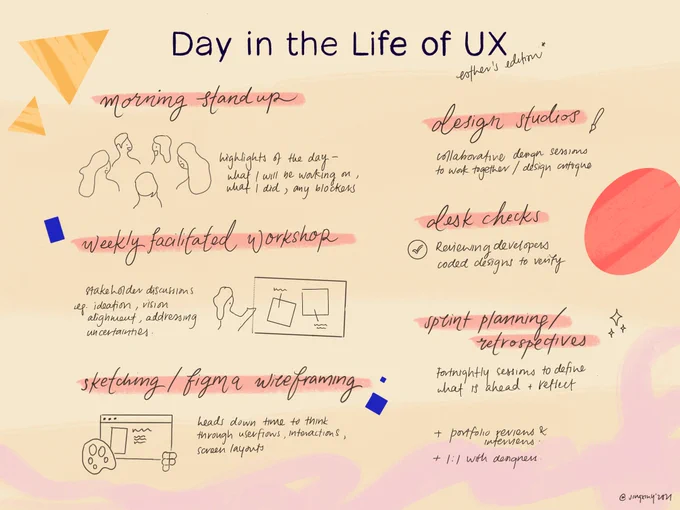 Day in the Life of UX
esther's edition*
morning standup
highlights of the day -
what I will be working on,
what I did, any blockers
weekly facilitated workshop
stakeholder discussions
eg. ideation, vision
alignment, addressing
uncertainties.
sketching / figma wireframing
heads down time to think
through userflows, interactions,
screen layouts
design studios
collaborative design sessions
to work together / design critique
desk checks
Reviewing developers
coded designs to verify
sprint planning/
retrospectives
Fortnightly sessions to define
what is ahead + reflect
+ portfolio reviews &
interviews.
+ 1:1 with designers